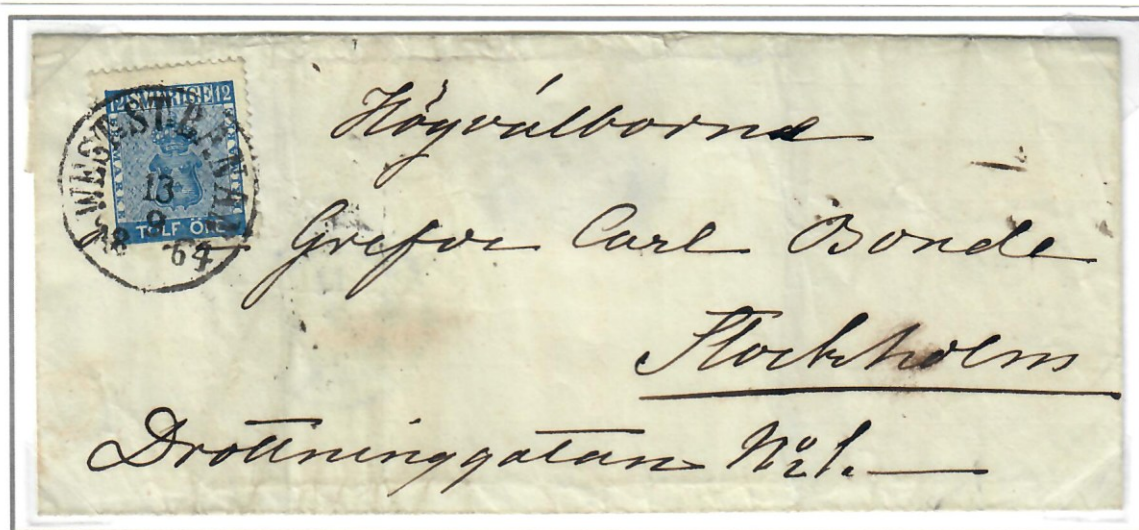 12 SVERIGE 12
FRIMÄRKE
TOLF ÖRE
WEST.ST.BANAN
13
9
18 64
Högvälborne
Grefve Carl Bonde
Stockholm
Drottninggatan No 1.